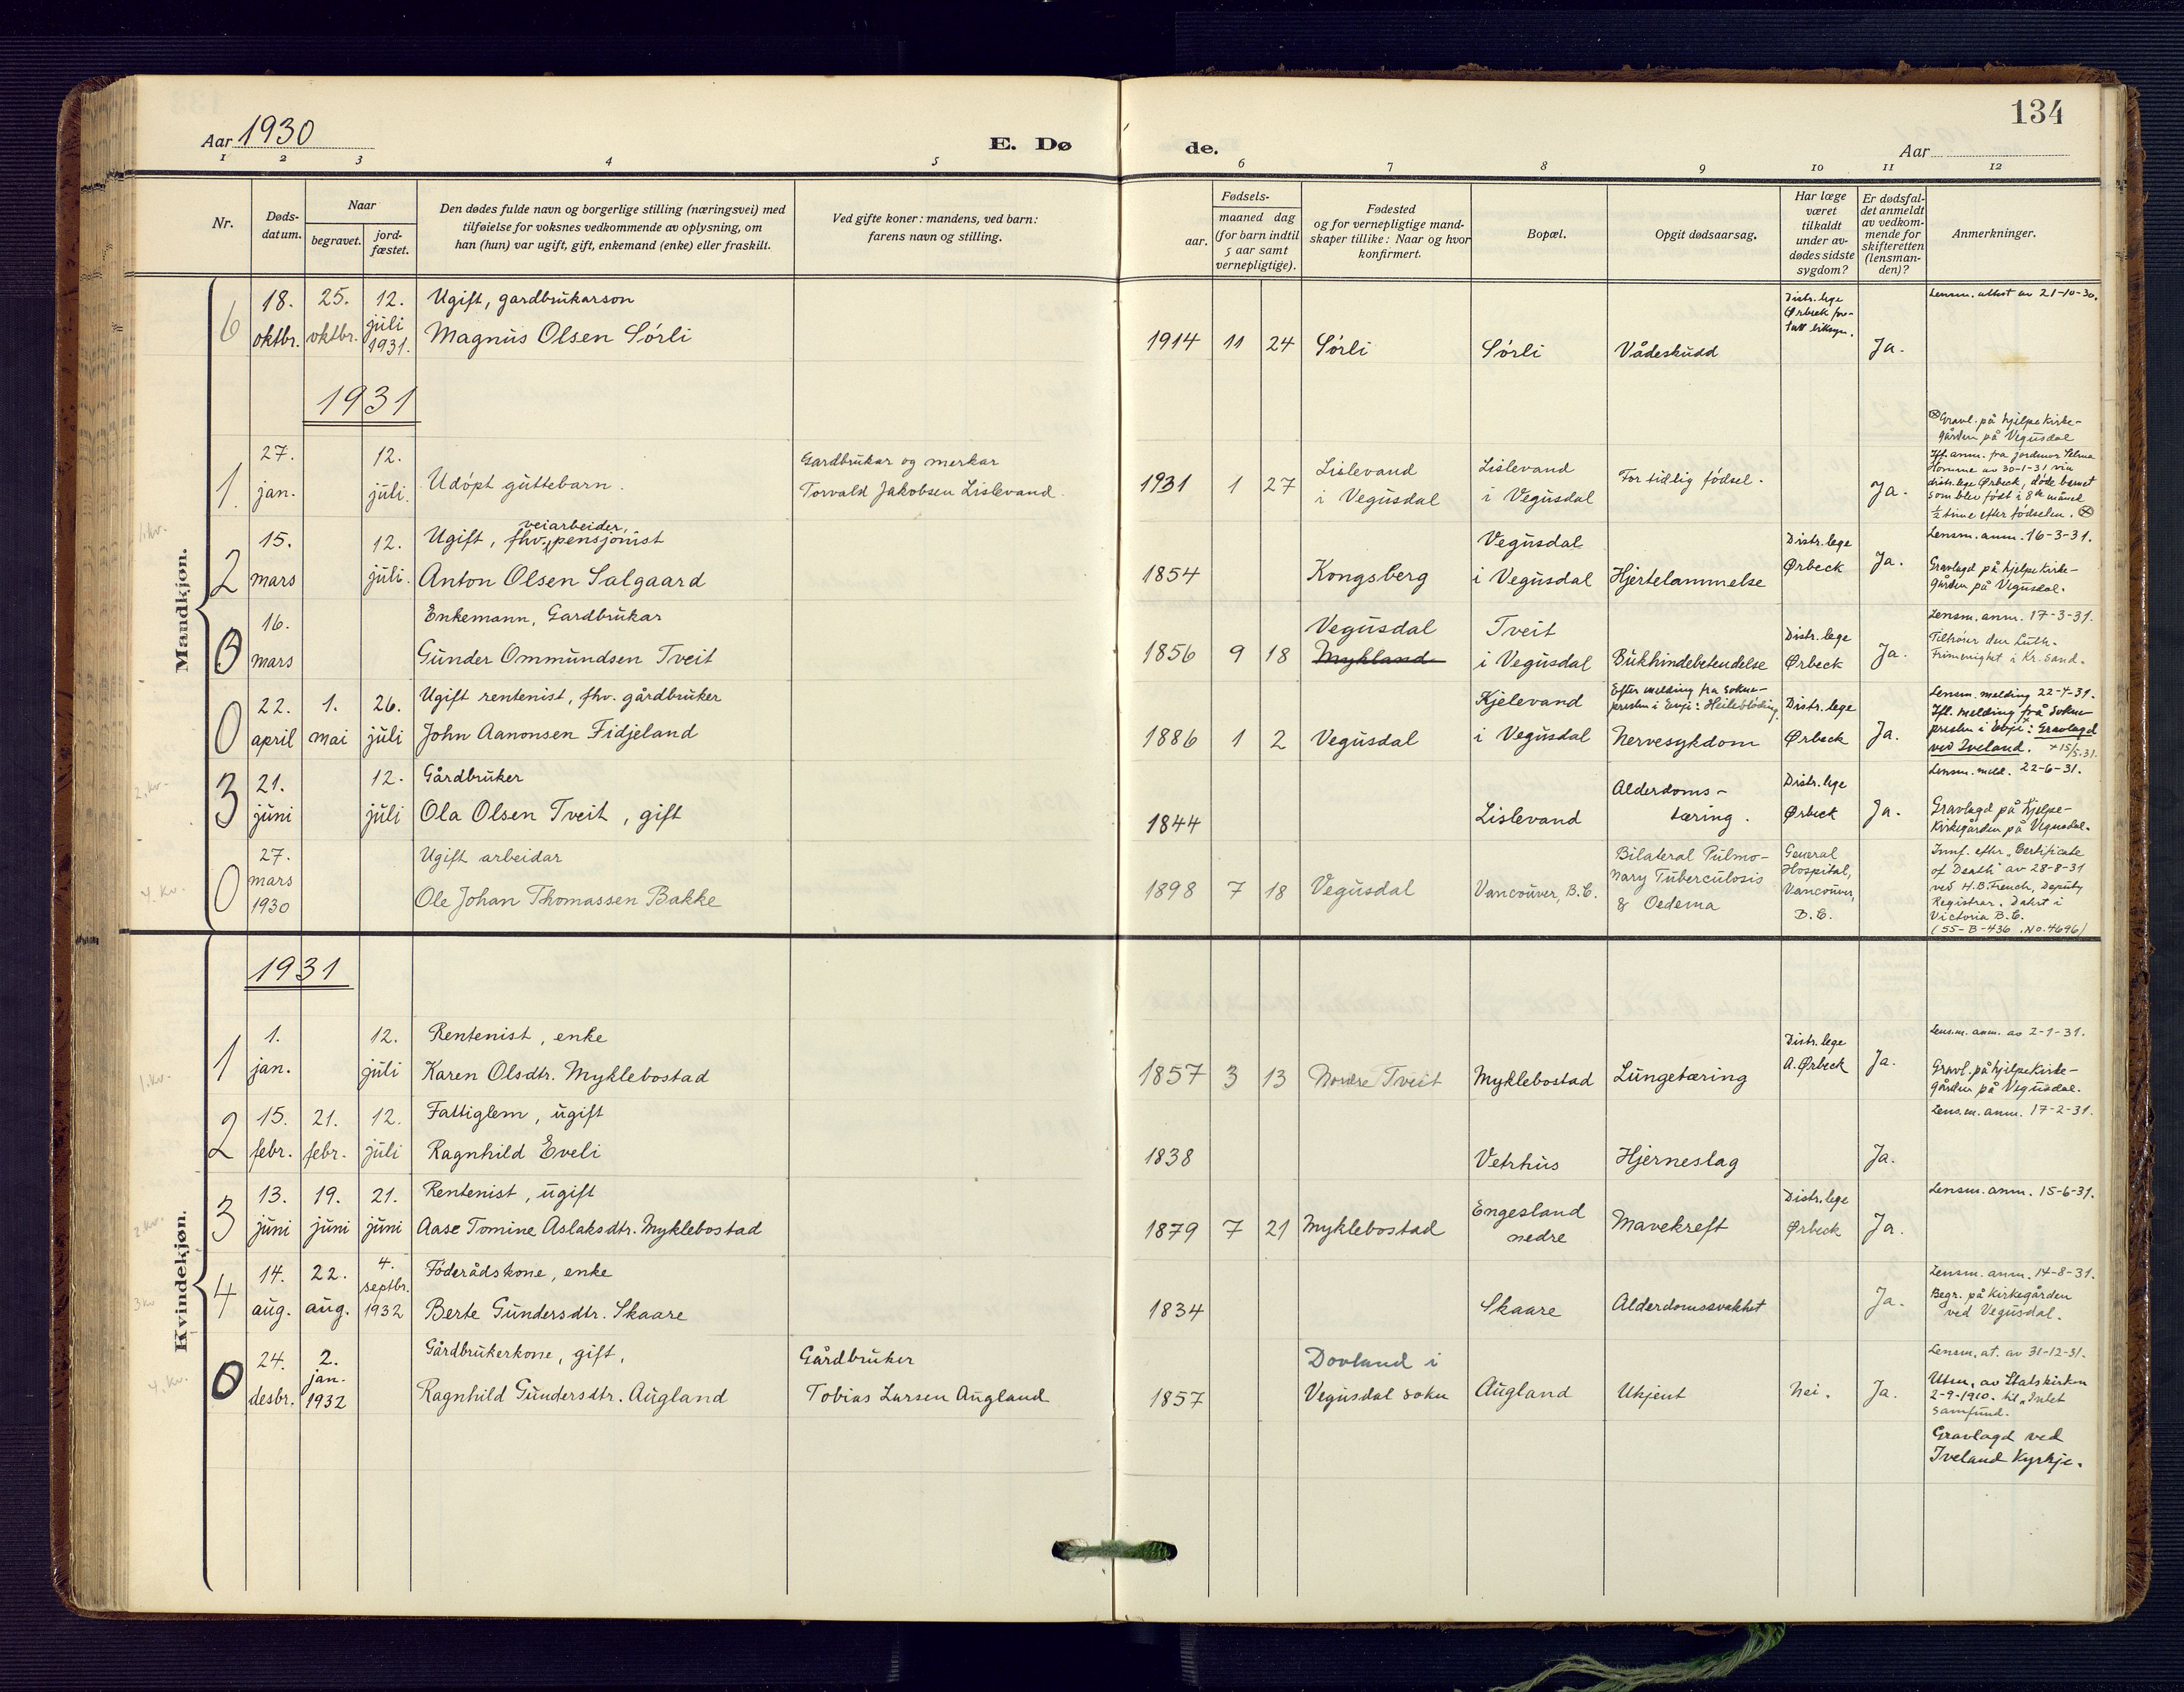 134
Aar 1930
E. Dø
de.
Aar
1 2 3 4 5 6 7 8 9 10 11 12
Nr.
Døds-
datum.
Naar
begravet.
jord-
fæstet.
Den dødes fulde navn og borgerlige stilling (næringsvei) med
tilføielse for voksnes vedkommende av oplysning, om
han (hun) var ugift, gift, enkemand (enke) eller fraskilt.
Ved gifte koner: mandens, ved barn:
farens navn og stilling.
Fødsels-
aar.
maaned dag
(for barn indtil
5 aar samt
vernepligtige).
Fødested
og for vernepligtige mand-
skaper tillike: Naar og hvor
konfirmert.
Bopæl.
Opgit dødsaarsag.
Har læge
været
tilkaldt
under av-
dødes sidste
sygdom?
Er dødsfal-
det anmeldt
av vedkom-
mende for
skifteretten
(lensman-
den)?
Anmerkninger.
Mandkjøn.
6
18.
oktbr.
25.
oktbr.
12.
juli
1931.
Ugift, gardbrukarson
Magnus Olsen Sørli
1914 11 24
Sørli
Sørli
Vådeskudd
Distr. lege
Ørbeck
Ja.
Lensm. attest av 21-10-30.
1931
1.kv.
1.
27.
jan.
12.
juli.
Udøpt guttebarn.
Gardbrukar og merkar
Torvald Jakobsen Lislevand.
1931 1 27
Lislevand
i Vegusdal
Lislevand
i Vegusdal
For tidlig fødsel.
Ja.
⊗ Gravl. på hjelpekirke-
gården på Vegusdal
Ifl. anm. fra jordmor Selma
Homme av 30-1-31 via
distr. lege Ørbeck, døde barnet
som blev født i 8de måned
½ time efter fødselen. ⊗
2
15.
mars
12.
juli.
veiarbeider,
Ugift, fhv. pensjonist
Anton Olsen Salgaard
1854
Kongsberg
Vegusdal
i Vegusdal
Hjertelammelse
Distr. lege
Ørbeck
Ja.
Lensm. anm. 16-3-31.
Gravlagd på hjelpekirke-
gården på Vegusdal.
0
16.
mars
Enkemann, Gardbrukar
Gunder Ommundsen Tveit
1856 9 18
Vegusdal
Mykland
Tveit
i Vegusdal
Bukhindebetendelse
Distr. lege
Ørbeck
Ja.
Lensm. anm. 17-3-31.
Tilhører den Luth.
Frimenighet i Kr.sand.
0
22.
april
1.
mai
26.
juli
Ugift rentenist, fhv. gårdbruker
John Aanonsen Fidjeland
1886 1 2
Vegusdal
Kjelevand
i Vegusdal
Efter melding fra sokne-
presten i Evje: Heileblöding
Nervesykdom
Distr. lege
Ørbeck
Ja.
Lensm. melding 22-4-31.
Ifl. melding frå sokne-
presten i Evje: Gravlagd
ved Iveland. +15/5.31.
2.kv.
3
21.
juni
12.
juli
Gårdbruker
Ola Olsen Tveit, gift
1844
Lislevand
Alderdoms-
tæring.
Distr. lege
Ørbeck
Ja.
Lensm. meld. 22-6-31.
Gravlagd på hjelpe-
kirkegården på Vegusdal.
4. kv.
0
27.
mars
1930
Ugift arbeidar
Ole Johan Thomassen Bakke
1898 7 18
Vegusdal
Vancouver, B.C.
Bilateral Pulmo-
nary Tuberculosis
& Oedema
General
Hospital,
Vancouver,
B.C.
Innf. efter "Certificate
of Death" av 28-8-31
ved H.B. French, Deputy
Registrar. Datert i
Victoria B.C.
(55-B-436. No. 4696)
Kvindekjøn.
1931
1.kv.
1
1.
jan.
12.
juli
Rentenist, enke
Karen Olsdtr. Myklebostad
1857 3 13
Nordre Tveit
Myklebostad
Lungetæring
Distr. lege
A. Ørbeck
Ja.
Lensm. anm. av 2-1-31.
Gravl. på hjelpekirke-
gården på Vegusdal.
2
15.
febr.
21.
febr.
12.
juli
Fattiglem, ugift
Ragnhild Eveli
1838
Vetrhus
Hjerneslag
Ja.
Lensm. anm. 17-2-31.
2.kv.
3
13.
juni
19.
juni
21.
juni
Rentenist, ugift
Aase Tomine Aslaksdtr. Myklebostad
1879 7 21
Myklebostad
Engesland
nedre
Mavekreft
Distr. lege
Ørbeck
Ja.
Lensm. anm. 15-6-31.
3 kv
4
14.
aug.
22.
aug.
4.
septbr.
1932
Føderådskone, enke
Berte Gundersdtr. Skaare
1834
Skaare
Alderdomssvakhet
Ja.
Lensm. anm. 14-8-31.
Begr. på kirkegården
ved Vegusdal.
4. kv.
0
24.
desbr.
2.
jan.
1932
Gårdbrukerkone, gift,
Ragnhild Gundersdtr. Augland
Gårdbruker
Tobias Larsen Augland
1857
Dovland i
Vegusdal sokn
Augland
Ukjent
Nei.
Ja.
Lensm. at. av 31-12-31.
Utm. av Statskirken
2-9-1910. til "Intet
samfund.
Gravlagd ved
Iveland Kyrkje.